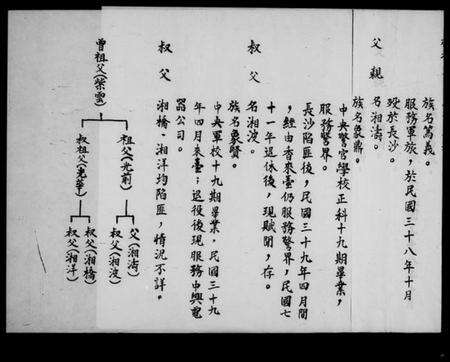 族名篤義。
服務軍旅，於民國三十八年十月
歿於長沙。
父親　名湘濤。
族名象鼎。
中央警官學校正科十九期畢業，
服務警界。
長沙陷匪後，民國三十九年四月間
，經由香來臺仍服務警界，民國七
十一年退休後，現賦閒，存。
叔父　名湘波。
族名象賢。
中央軍校十九期畢業，民國三十九
年四月來臺；退役後現服務中興電
器公司。
叔父　湘橋、湘洋均陷匪，情況不詳。
曾祖父(紫雲)
祖父(光前)
叔祖父(光華)
父(湘濤)
叔父(湘波)
叔父(湘橋)
叔父(湘洋)